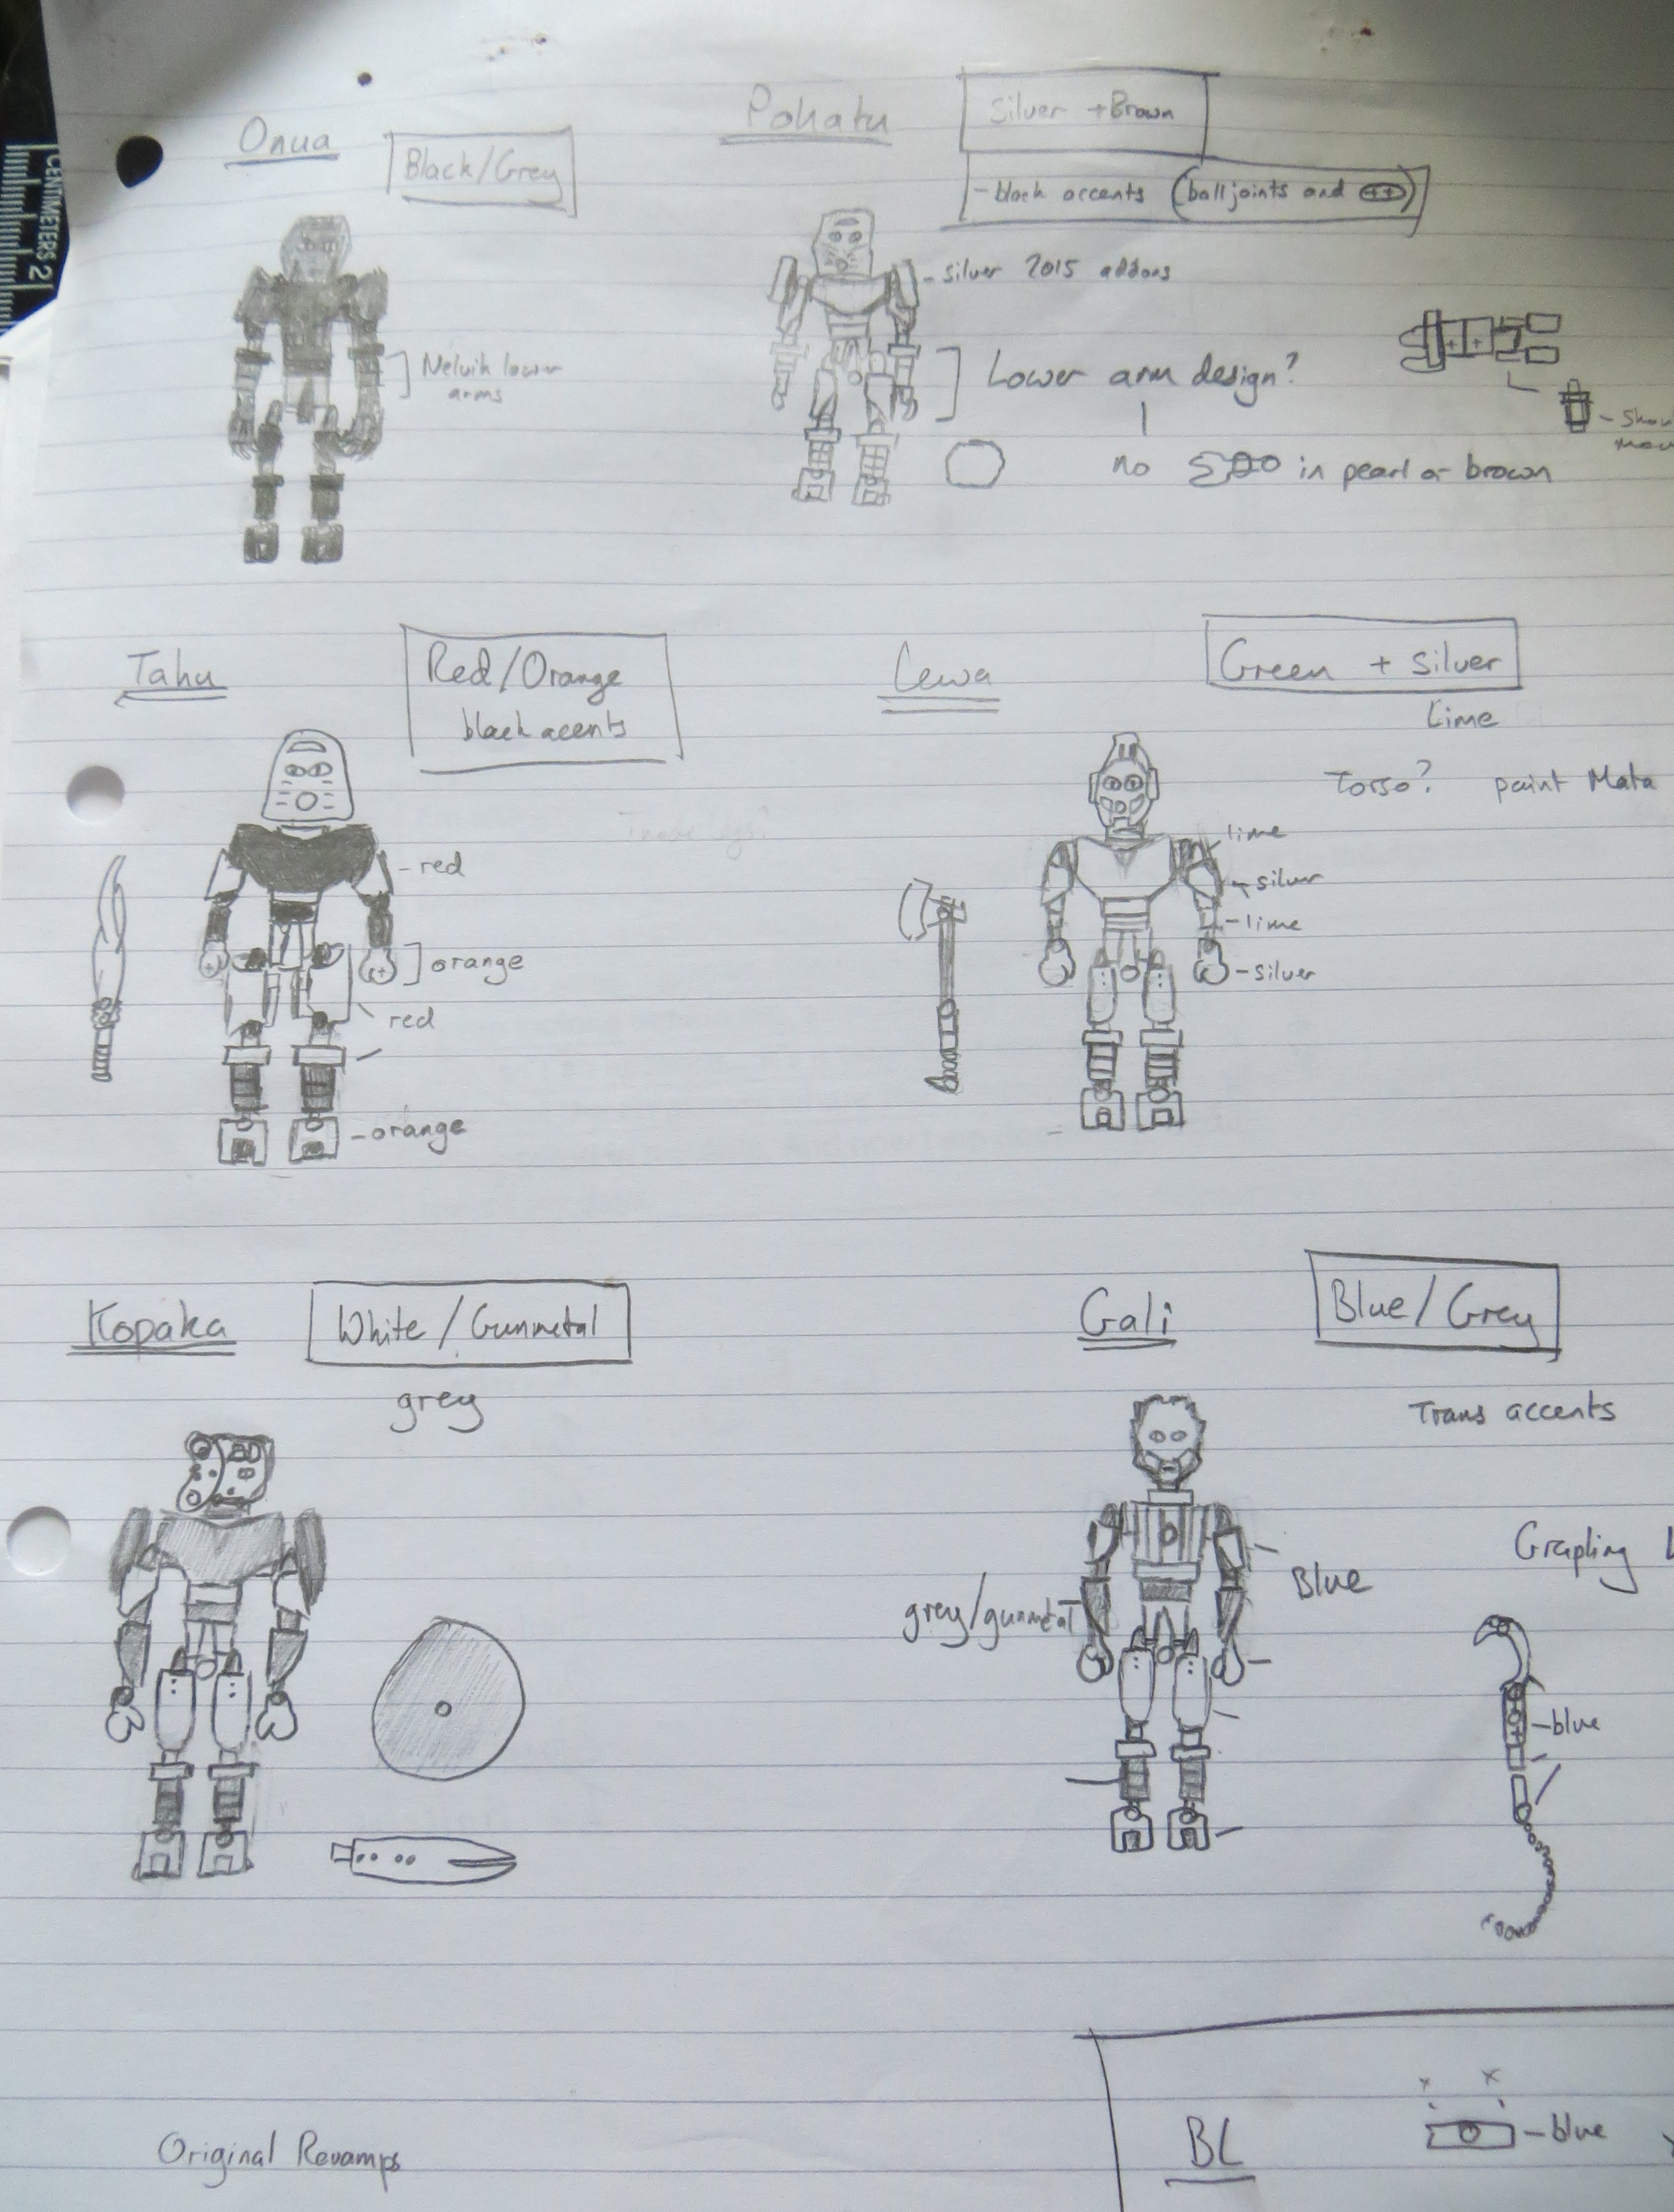 CENTIMETERS 2
Onua
Black/Grey
Pohatu
Silver + Brown
- black accents (ball joints and
- silver 2015 addons
lower
arms
Lower arm design?
no
in pearl or brown
Tahu
Red/Orange
black acents
- red
orange
red
- orange
Lewa
Green + silver
Lime
Torso? paint Mata
lime
- silver
- lime
- silver
Kopaka
White/Gunmetal
grey
Gali
Blue/Grey
Trans accents
Grapling
Blue
grey/gunmetal
- blue
Original Revamps
BL
- blue